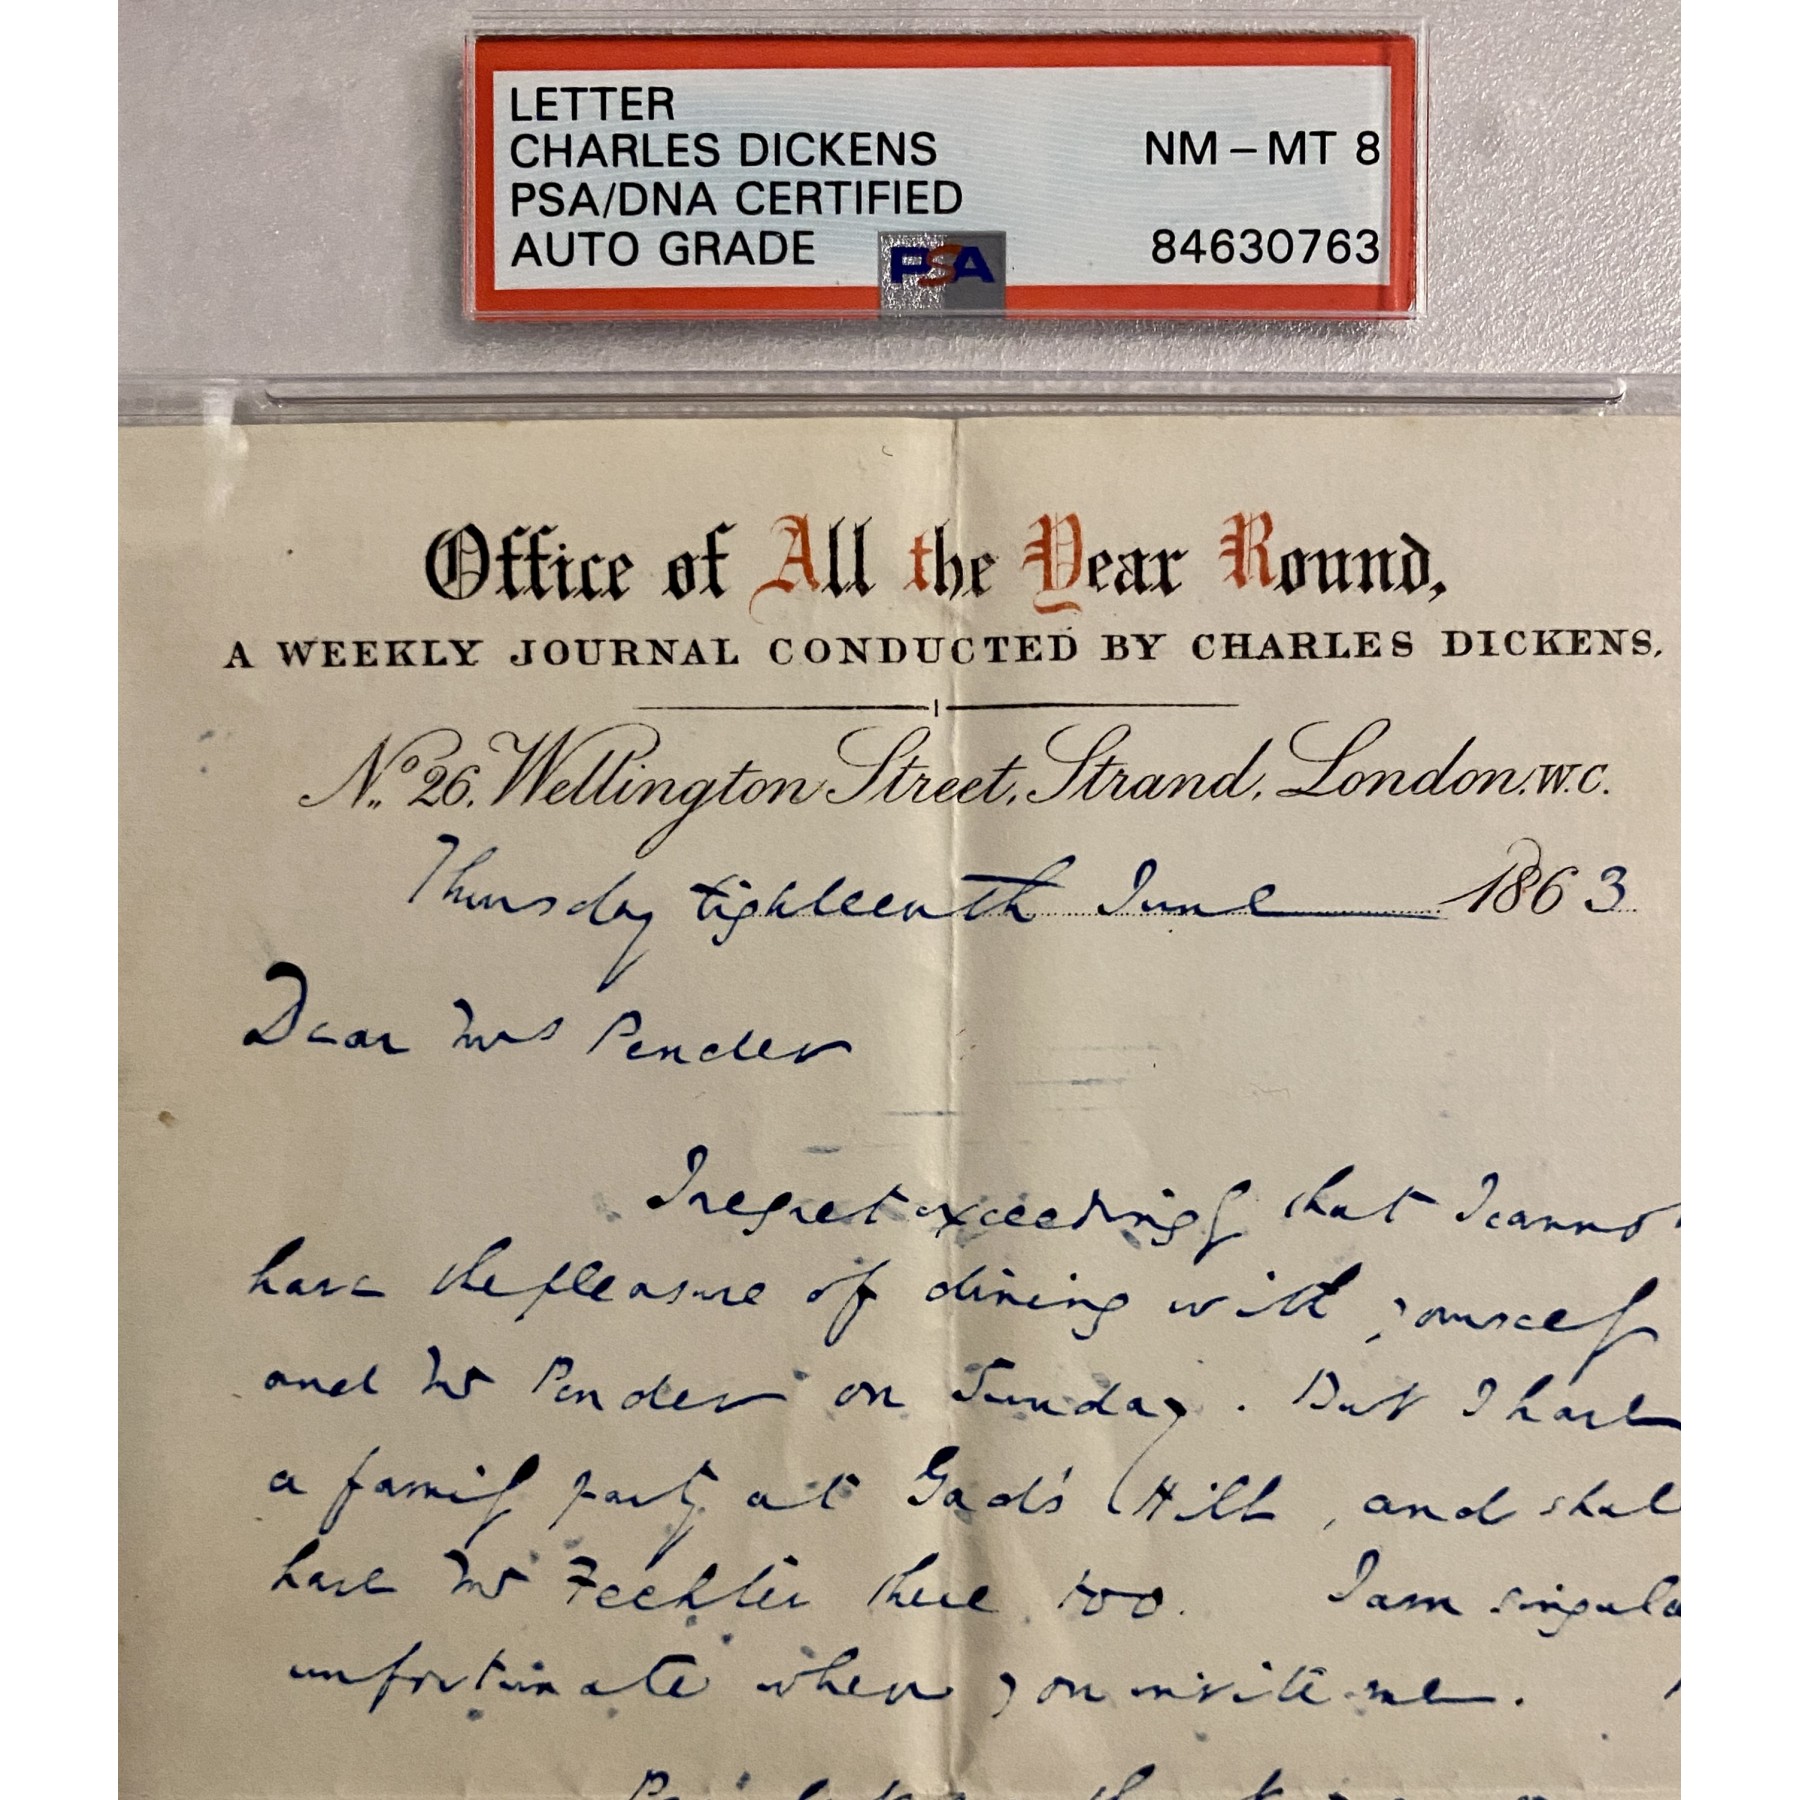 LETTER
CHARLES DICKENS NM - MT 8
PSA/DNA CERTIFIED
AUTO GRADE PSA 84630763
Office of All the Year Round,
A WEEKLY JOURNAL CONDUCTED BY CHARLES DICKENS.
No. 26, Wellington Street, Strand, London, W.C.
Thursday Eighteenth June 1863
Dear Mrs Pender
I regret exceedingly that I cannot
have the pleasure of dining with yourself
and Mr Pender on Sunday. But I have
a family party at Gad's Hill, and shall
have Mr Fechter there too. I am singula
unfortunate when you invite me.